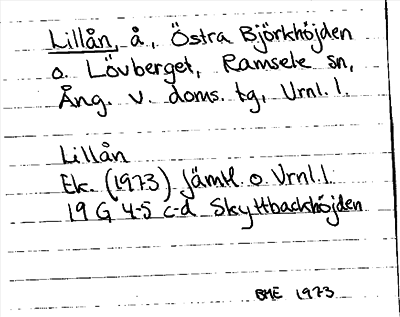 Lillån, å, Östra Björkhöjden
o. Lövberget, Ramsele sn,
Ång. v. doms. tg, Vrnl. l.
Lillån
Ek. (1973) Jämtl. o Vrnl. l.
19 G 4-5 c-d Skyttbackhöjden
BME 1973